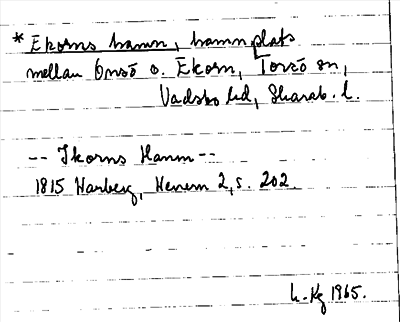 * Ekorns hamn, hamnplats
mellan Onsö o. Ekorn, Torsö sn,
Vadsbo hd, Skarab. l.
-- Ikorns Hamn --
1815 Warberg, Henem 2, s. 202.
L-Kg 1965.